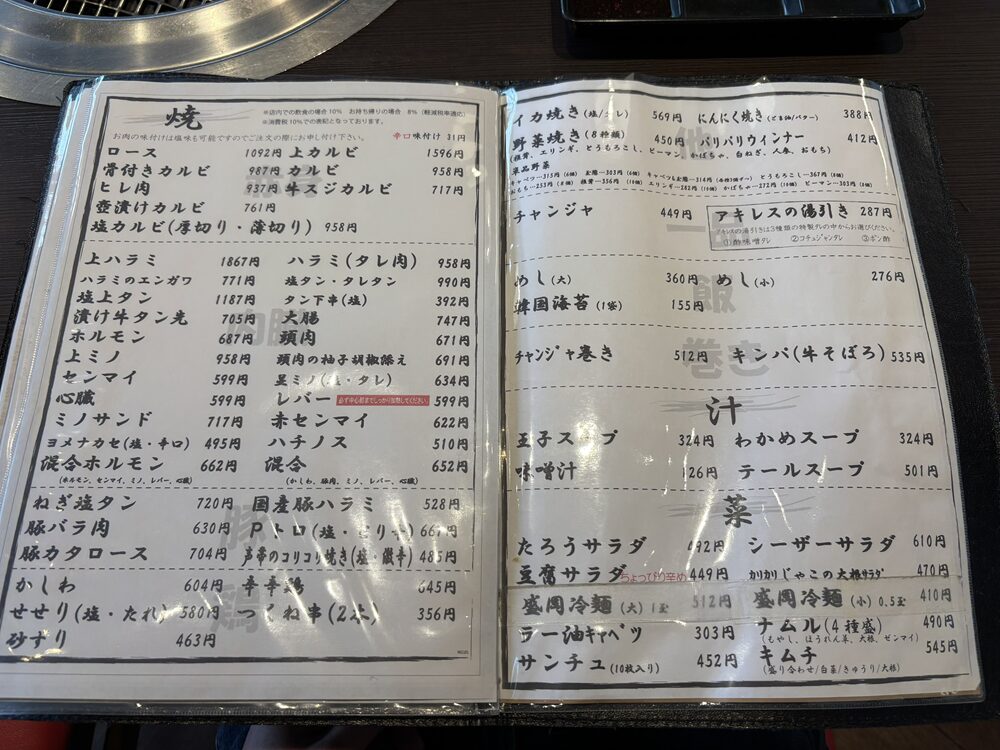 焼
※店内での飲食の場合10% お持ち帰りの場合 8% (軽減税率適応)
※消費税10%での表記となっております。
お肉の味付けは塩味も可能ですのでご注文の際にお申し付け下さい。 辛口味付け 31円
ロース 1092円 上カルビ 1596円
骨付きカルビ 987円 カルビ 958円
ヒレ肉 937円 牛スジカルビ 717円
壺漬けカルビ 761円
塩カルビ(厚切り・薄切り) 958円
上ハラミ 1867円 ハラミ(タレ肉) 958円
ハラミのエンガワ 771円 塩タン・タレタン 990円
塩上タン 1187円 タン下串(塩) 392円
漬け牛タン先 705円 大腸 747円
ホルモン 687円 頬肉 671円
上ミノ 958円 頬肉の柚子胡椒添え 691円
センマイ 599円 並ミノ(塩・タレ) 634円
心臓 599円 レバー 必ず中心部までしっかり加熱してください。 599円
ミノサンド 717円 赤センマイ 622円
ヨメナカセ(塩・辛口) 495円 ハチノス 510円
混合ホルモン 662円 混合 652円
(ホルモン、センマイ、ミノ、レバー、心臓) (かしわ、豚肉、ミノ、レバー、心臓)
ねぎ塩タン 720円 国産豚ハラミ 528円
豚バラ肉 630円 Pトロ(塩・ピリ辛) 667円
豚カタロース 704円 声帯のコリコリ焼き(塩・激辛) 485円
かしわ 604円 辛辛鶏 645円
せせり(塩・たれ) 580円 つくね串(2本) 356円
砂ずり 463円
イカ焼き(塩/タレ) 569円 にんにく焼き(ごま油/バター) 388円
野菜焼き(8種類) 450円 パリパリウィンナー 412円
(椎茸、エリンギ、とうもろこし、ピーマン、かぼちゃ、白ねぎ、人参、おもち)
単品野菜
キャベツ…315円(6個) 玉葱…303円(6個) キャベツ&玉葱…314円(各種3個ずつ) とうもろこし…367円(8個)
おもち…253円(8個) 椎茸…356円(10個) エリンギ…262円(10個) かぼちゃ…272円(10個) ピーマン…303円(8個)
チャンジャ 449円 アキレスの湯引き 287円
アキレスの湯引きは3種類の特製ダレの中からお選びください。
①酢味噌タレ ②コチュジャンダレ ③ポン酢
めし(大) 360円 めし(小) 276円
韓国海苔(1袋) 155円
チャンジャ巻き 512円 キンパ(牛そぼろ) 535円
汁
玉子スープ 324円 わかめスープ 324円
味噌汁 126円 テールスープ 501円
菜
たろうサラダ 492円 シーザーサラダ 610円
豆腐サラダ ちょっぴり辛め 449円 カリカリじゃこの大根サラダ 470円
盛岡冷麺(大)1玉 512円 盛岡冷麺(小)0.5玉 410円
ラー油キャベツ 303円 ナムル(4種盛) 490円
(もやし、ほうれん草、大根、ゼンマイ)
サンチュ(10枚入り) 452円 キムチ 545円
(盛り合わせ/白菜/きゅうり/大根)